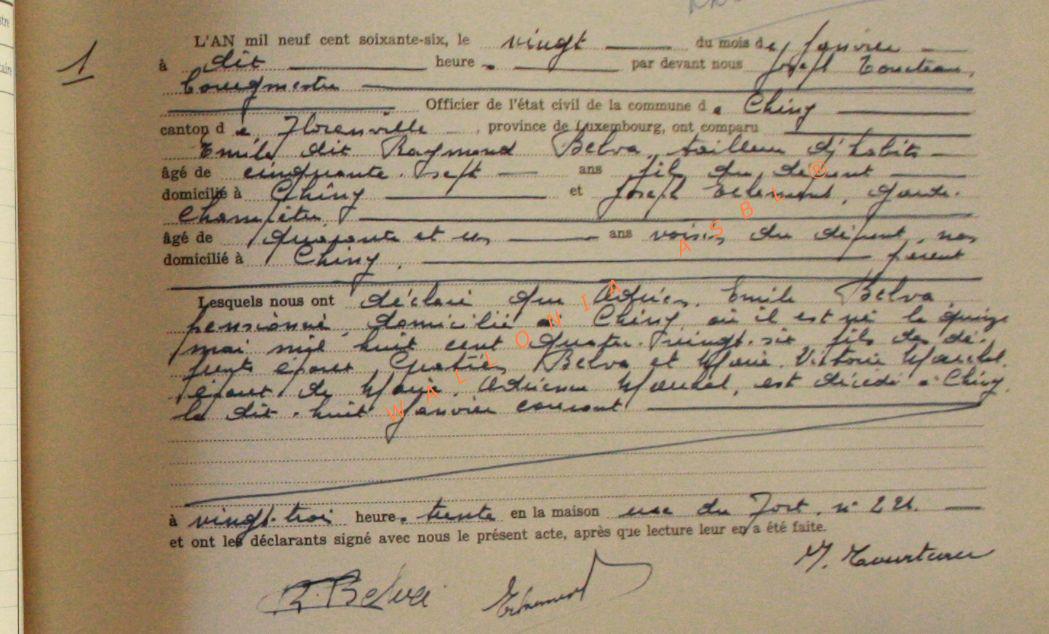 1
L'AN mil neuf cent soixante-six, le vingt du mois de janvier
à dix heures par devant nous Joseph
Bourgmestre
Officier de l'état civil de la commune de Chiny
canton de Florenville, province de Luxembourg, ont comparu
Emile dit Raymond Belva, tailleur d'habits
âgé de cinquante-sept ans fils du défunt
domicilié à Chiny et Joseph garde-
champêtre
âgé de quarante et un ans voisin du défunt, non
domicilié à Chiny, parent
Lesquels nous ont déclaré que Adrien, Emile Belva
pensionné domicilié à Chiny où il est né le quinze
mai mil huit cent quatre-vingt-six fils des dé-
funts époux Belva et Marie, Victorie
époux de Marie, Adrienne est décédé à Chiny,
le dix-huit janvier courant
à vingt-trois heures trente en la maison rue du Fort, n°
et ont les déclarants signé avec nous le présent acte, après que lecture leur en a été faite.
R. Belva
WALLONIA ASBL ®